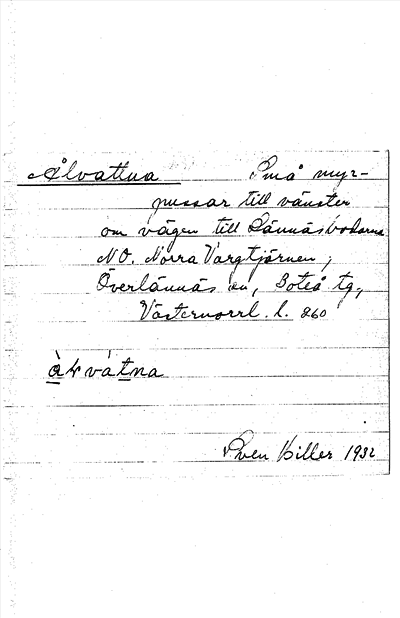 Ålvattna Små myr-
pussar till vänster
om vägen till Lännäsbodarna
NO. Norra Vargtjärnen,
Överlännäs sn, Boteå tg,
Västernorrl. l. 260
Sven Hiller 1932